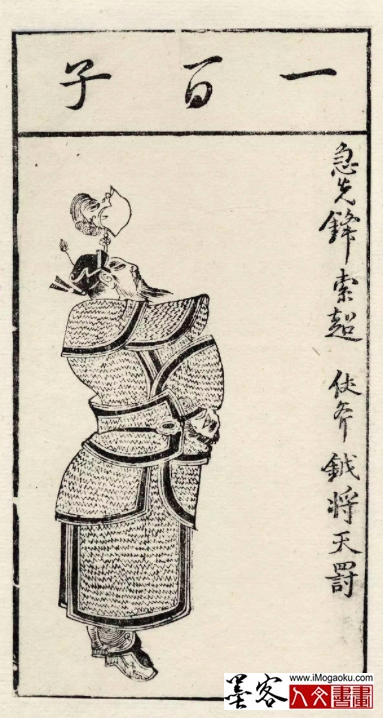 一百子
急先鋒索超 使斧鉞將天罰
www.iMogaoku.com
墨客
人文書畫